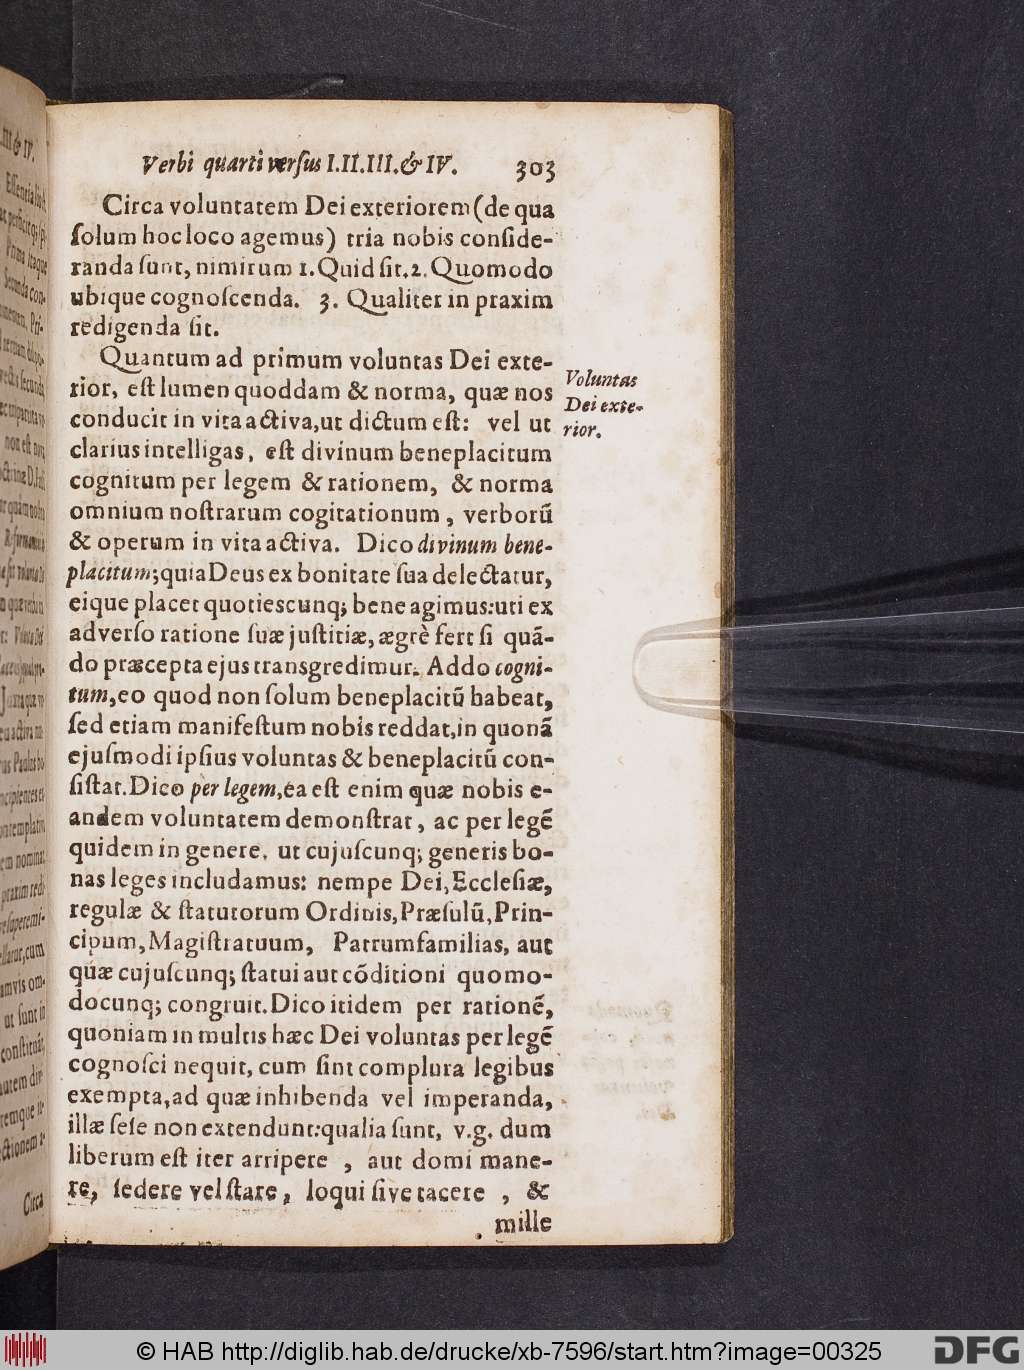 Verbi quarti versus I.II.III.& IV. 303
Circa voluntatem Dei exteriorem (de qua
ſolum hoc loco agemus) tria nobis conſide-
randa ſunt, nimirum 1. Quid ſit. 2. Quomodo
ubique cognoſcenda. 3. Qualiter in praxim
redigenda ſit.
Quantum ad primum voluntas Dei exte-
rior, eſt lumen quoddam & norma, quæ nos
conducit in vita activa, ut dictum eſt: vel ut
clarius intelligas, eſt divinum beneplacitum
cognitum per legem & rationem, & norma
omnium noſtrarum cogitationum, verborũ
& operum in vita activa. Dico divinum bene-
placitum; quia Deus ex bonitate ſua delectatur,
eique placet quotieſcunq; bene agimus: uti ex
adverſo ratione ſuæ juſtitiæ, ægrè fert ſi quã-
do præcepta ejus transgredimur. Addo cogni-
tum, eo quod non ſolum beneplacitũ habeat,
ſed etiam manifeſtum nobis reddat, in quonã
ejuſmodi ipſius voluntas & beneplacitũ con-
ſiſtat. Dico per legem, ea eſt enim quæ nobis e-
andem voluntatem demonſtrat, ac per legẽ
quidem in genere, ut cujuſcunq; generis bo-
nas leges includamus: nempe Dei, Eccleſiæ,
regulæ & ſtatutorum Ordinis, Præſulũ, Prin-
cipum, Magiſtratuum, Patrumfamilias, aut
quæ cujuſcunq; ſtatui aut cõditioni quomo-
docunq; congruit. Dico itidem per rationẽ,
quoniam in multis hæc Dei voluntas per legẽ
cognoſci nequit, cum ſint complura legibus
exempta, ad quæ inhibenda vel imperanda,
illæ ſeſe non extendunt: qualia ſunt, v.g. dum
liberum eſt iter arripere, aut domi mane-
re, ſedere vel ſtare, loqui ſive tacere, &
mille
Voluntas
Dei exte-
rior.
Circa
© HAB http://diglib.hab.de/drucke/xb-7596/start.htm?image=00325
DFG